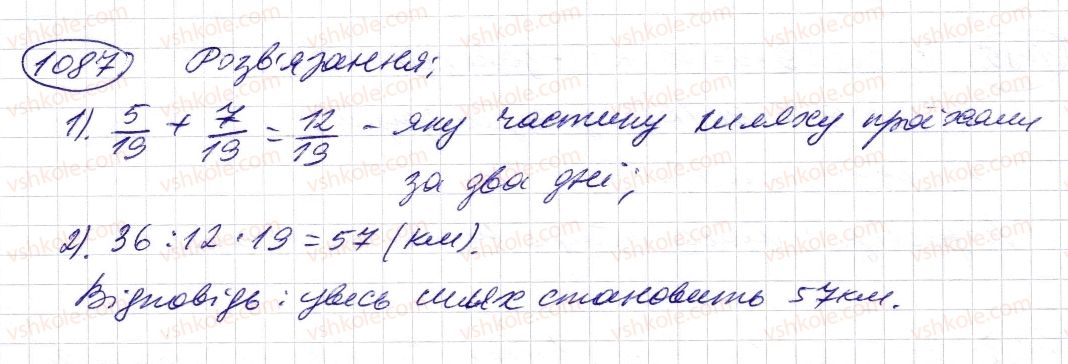 1087 Розв'язання:
1). 5/19 + 7/19 = 12/19 - яку частину шляху проїхали
за два дні;
2). 36 : 12 · 19 = 57 (км).
Відповідь: увесь шлях становить 57 км.